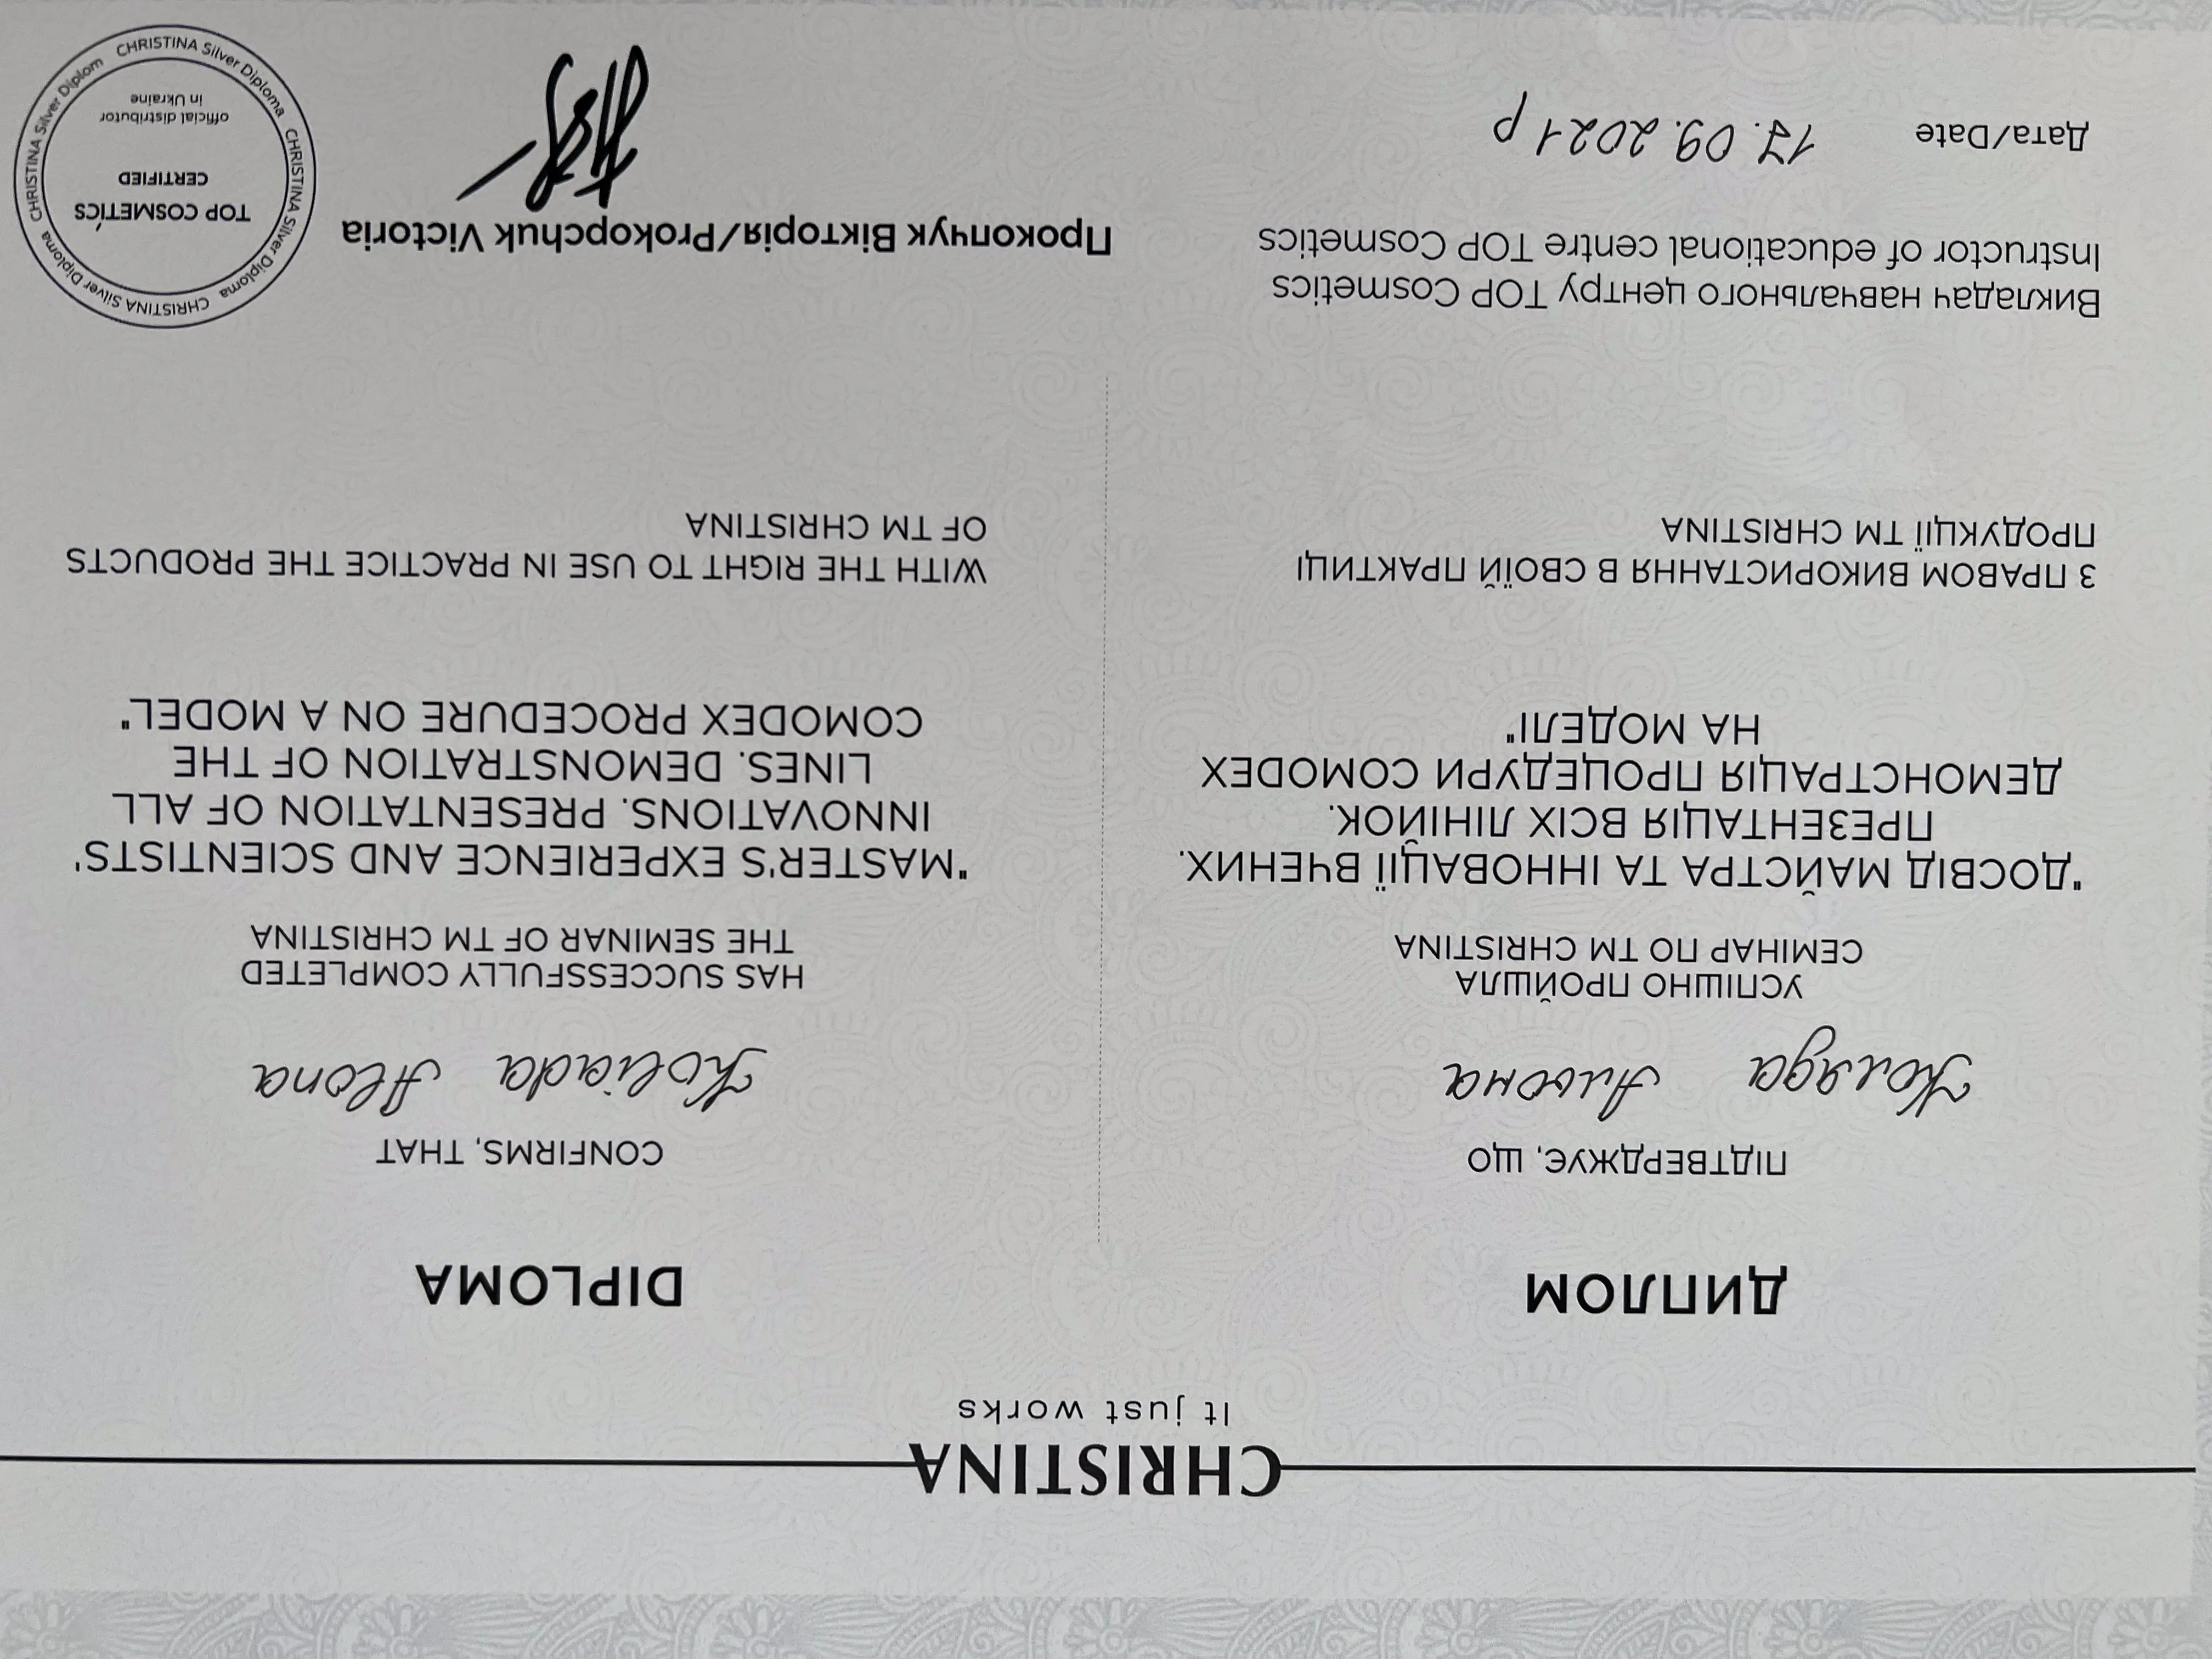 CHRISTINA
It just works
ДИПЛОМ
ПІДТВЕРДЖУЄ, ЩО
Коляда Альона
УСПІШНО ПРОЙШЛА
СЕМІНАР ПО ТМ CHRISTINA
"ДОСВІД МАЙСТРА ТА ІННОВАЦІЇ ВЧЕНИХ.
ПРЕЗЕНТАЦІЯ ВСІХ ЛІНІЙОК.
ДЕМОНСТРАЦІЯ ПРОЦЕДУРИ COMODEX
НА МОДЕЛІ"
З ПРАВОМ ВИКОРИСТАННЯ В СВОЇЙ ПРАКТИЦІ
ПРОДУКЦІЇ ТМ CHRISTINA
DIPLOMA
CONFIRMS, THAT
Koliada Alona
HAS SUCCESSFULLY COMPLETED
THE SEMINAR OF TM CHRISTINA
"MASTER'S EXPERIENCE AND SCIENTISTS'
INNOVATIONS. PRESENTATION OF ALL
LINES. DEMONSTRATION OF THE
COMODEX PROCEDURE ON A MODEL"
WITH THE RIGHT TO USE IN PRACTICE THE PRODUCTS
OF TM CHRISTINA
Викладач навчального центру TOP Cosmetics
Instructor of educational centre TOP Cosmetics
Прокопчук Вікторія/Prokopchuk Victoria
Дата/Date 17.09.2021 р
CHRISTINA Silver Diploma CHRISTINA Silver Diploma CHRISTINA Silver Diploma CHRISTINA Silver Diplom
TOP COSMETICS
CERTIFIED
official distributor
in Ukraine